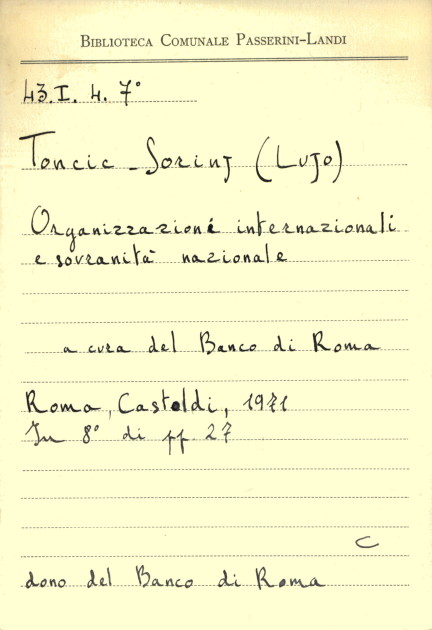 BIBLIOTECA COMUNALE PASSERINI-LANDI
43.I. 4. 7°
Toncic - Sorinj (Lujo)
Organizzazioni internazionali
e sovranità nazionale
a cura del Banco di Roma
Roma, Castaldi, 1971
In 8° di pp. 27
C
dono del Banco di Roma